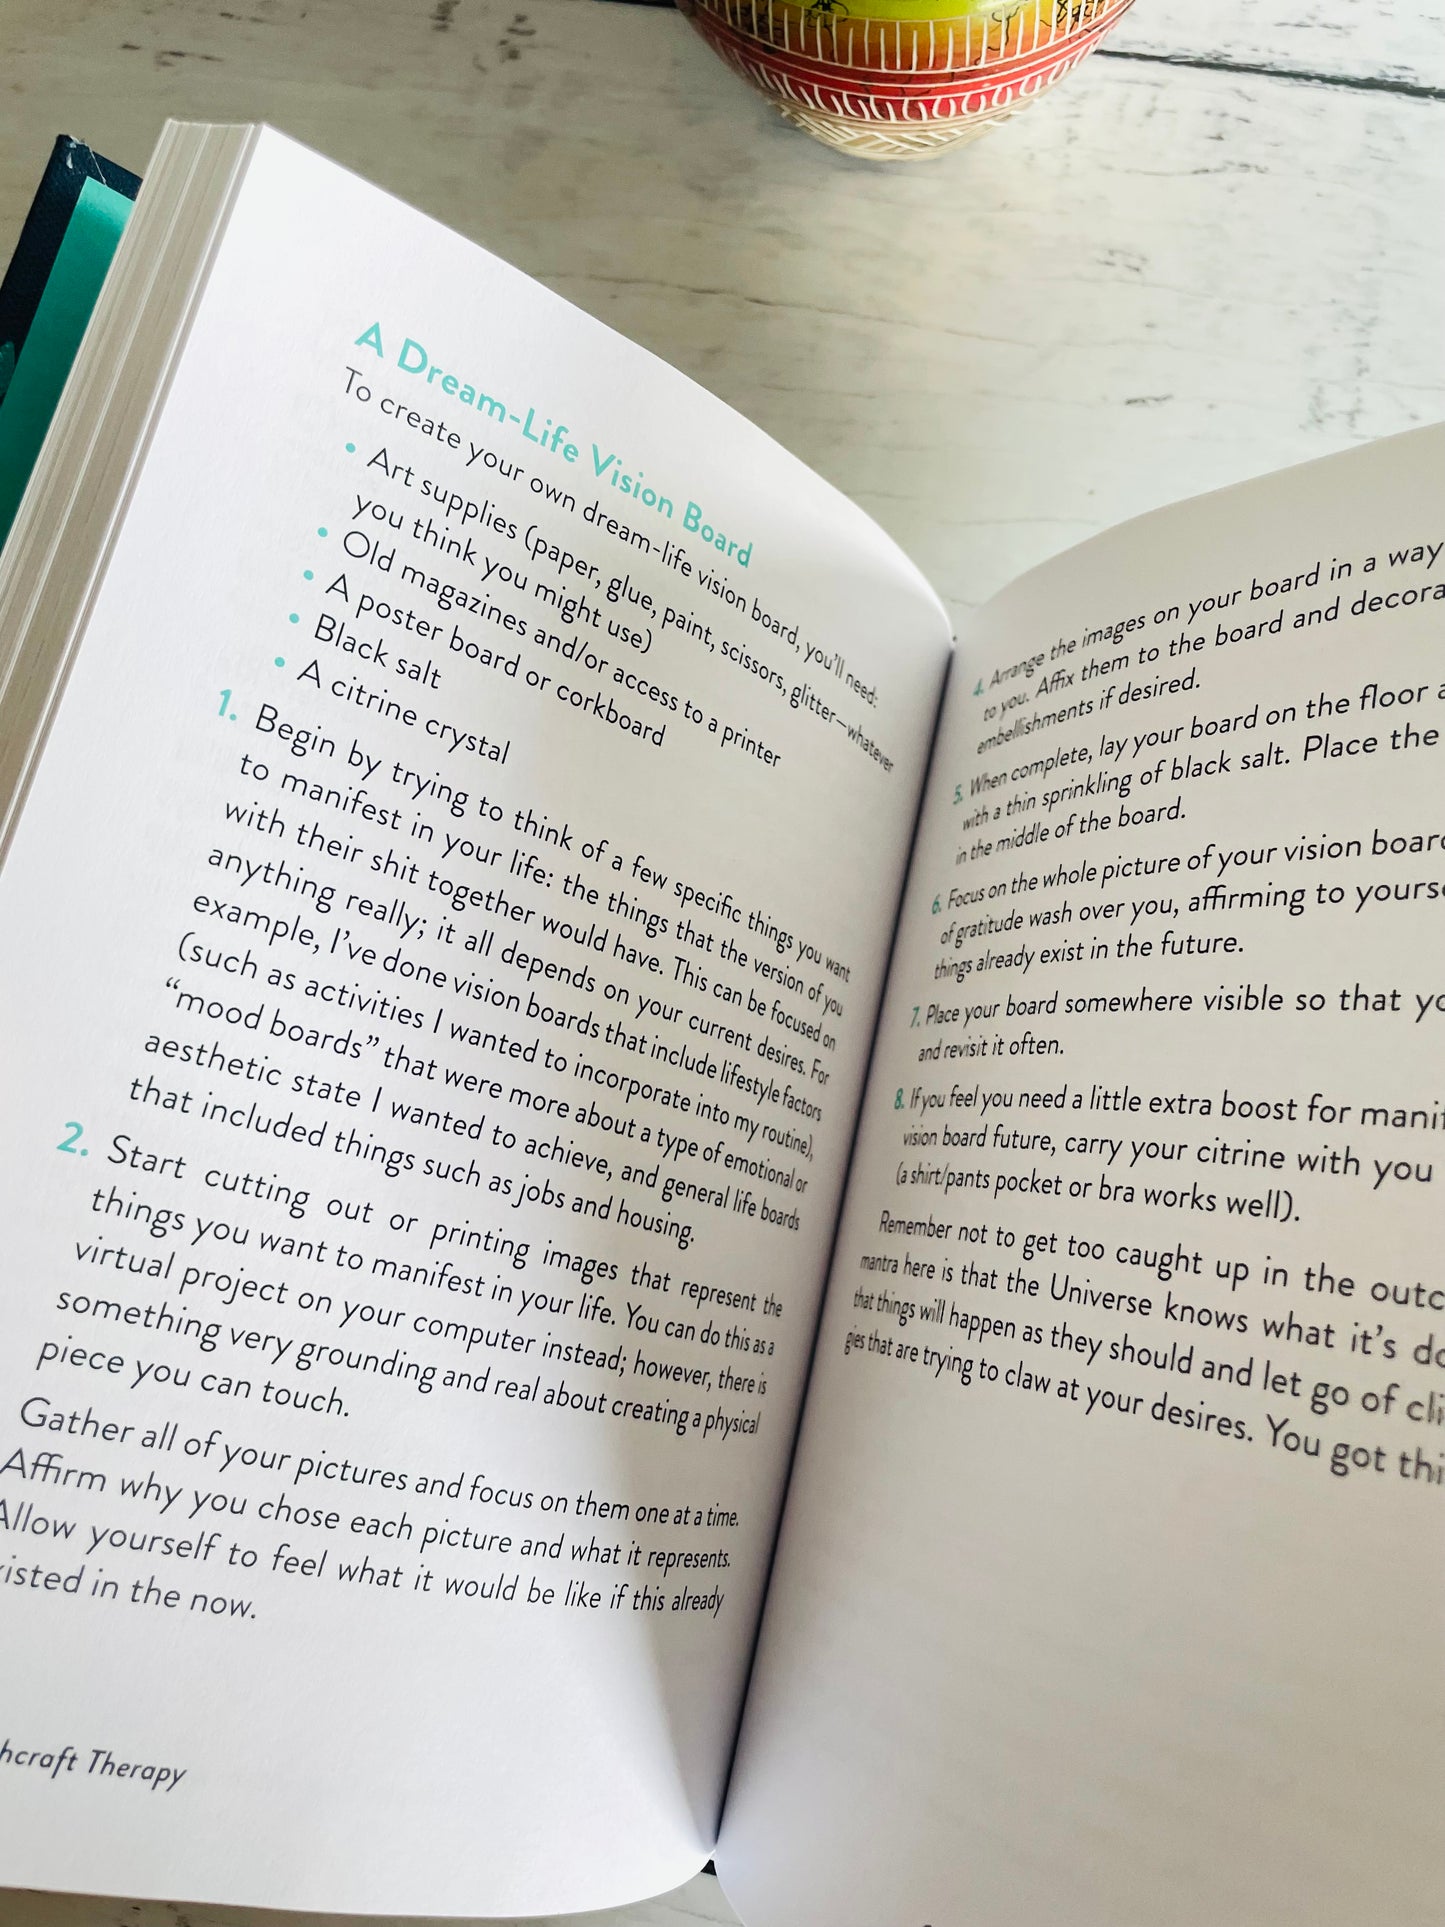 A Dream-Life Vision Board
To create your own dream-life vision board, you'll need:
• Art supplies (paper, glue, paint, scissors, glitter—whatever
you think you might use)
• Old magazines and/or access to a printer
• A poster board or corkboard
• Black salt
• A citrine crystal
1. Begin by trying to think of a few specific things you want
to manifest in your life: the things that the version of you
with their shit together would have. This can be focused on
anything really; it all depends on your current desires. For
example, I've done vision boards that include lifestyle factors
(such as activities I wanted to incorporate into my routine),
“mood boards” that were more about a type of emotional or
aesthetic state I wanted to achieve, and general life boards
that included things such as jobs and housing.
2. Start cutting out or printing images that represent the
things you want to manifest in your life. You can do this as a
virtual project on your computer instead; however, there is
something very grounding and real about creating a physical
piece you can touch.
Gather all of your pictures and focus on them one at a time.
Affirm why you chose each picture and what it represents.
Allow yourself to feel what it would be like if this already
isted in the now.
hcraft Therapy
4. Arrange the images on your board in a way
to you. Affix them to the board and decora
embellishments if desired.
5. When complete, lay your board on the floor a
with a thin sprinkling of black salt. Place the
in the middle of the board.
6. Focus on the whole picture of your vision board
of gratitude wash over you, affirming to yourse
things already exist in the future.
7. Place your board somewhere visible so that yo
and revisit it often.
8. If you feel you need a little extra boost for manif
vision board future, carry your citrine with you
(a shirt/pants pocket or bra works well).
Remember not to get too caught up in the outc
mantra here is that the Universe knows what it's do
that things will happen as they should and let go of cli
gies that are trying to claw at your desires. You got thi